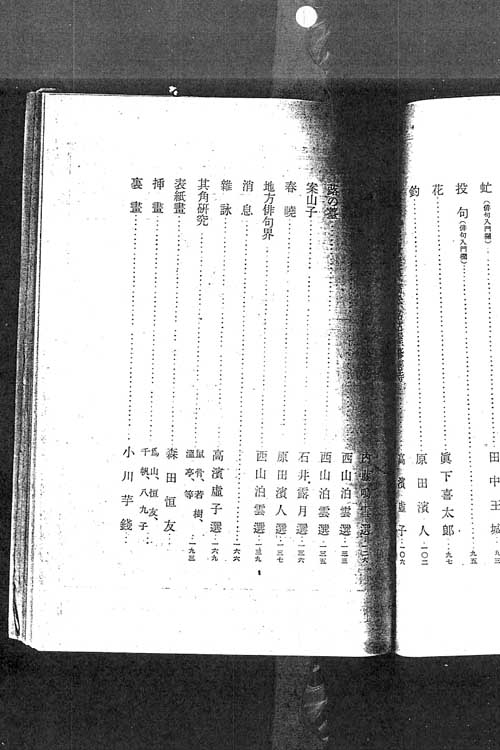 虻(俳句入門欄)……田中王城…九三
投句(俳句入門欄)……九五
花……眞下喜太郎…九七
原田濱人…一〇二
鈎……高濱虛子…一〇九
選…一二六
西山泊雲選…一三三
案山子……西山泊雲選…一三五
石井露月選
春曉……原田濱人選…一三七
地方俳句界……西山泊雲選…一五九
消息……一六六
雜詠……高濱虛子選…一六九
其角硏究……鼠骨、若樹、瀧亭、等…一九三
表紙畫……森田恒友
揷畫……爲山、恒友、千帆、八九子…
裏畫……小川芋錢…